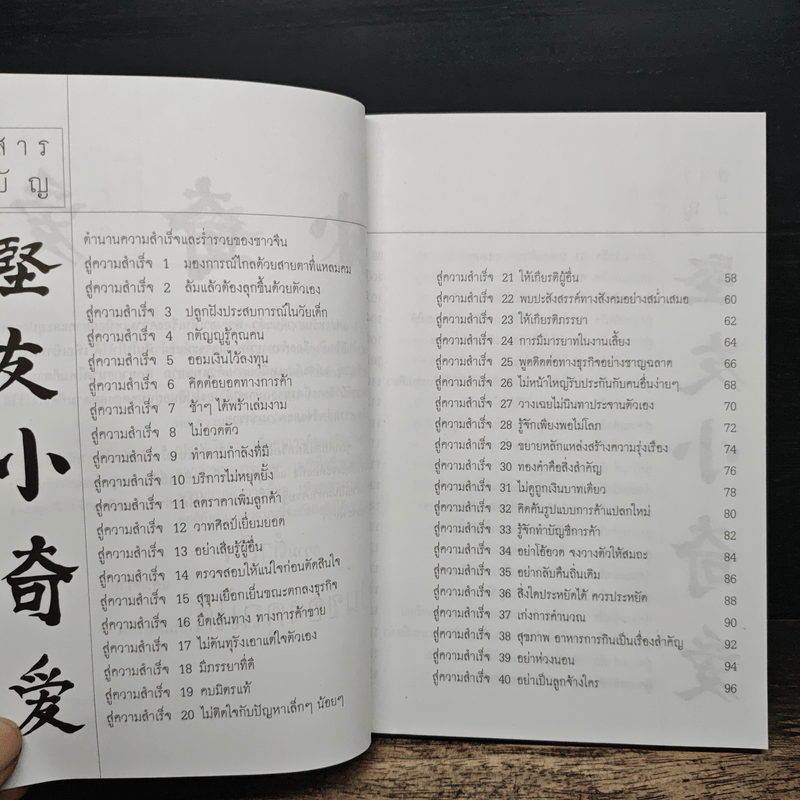 สาร
บัญ
堅
友
小
奇
愛
ตำนานความสำเร็จและร่ำรวยของชาวจีน
สู่ความสำเร็จ 1 มองการณ์ไกลด้วยสายตาที่แหลมคม
สู่ความสำเร็จ 2 ล้มแล้วต้องลุกขึ้นด้วยตัวเอง
สู่ความสำเร็จ 3 ปลูกฝังประสบการณ์ในวัยเด็ก
สู่ความสำเร็จ 4 กตัญญูรู้คุณคน
สู่ความสำเร็จ 5 ออมเงินไว้ลงทุน
สู่ความสำเร็จ 6 คิดต่อยอดทางการค้า
สู่ความสำเร็จ 7 ช้าๆ ได้พร้าเล่มงาม
สู่ความสำเร็จ 8 ไม่อวดตัว
สู่ความสำเร็จ 9 ทำตามกำลังที่มี
สู่ความสำเร็จ 10 บริการไม่หยุดยั้ง
สู่ความสำเร็จ 11 ลดราคาเพิ่มลูกค้า
สู่ความสำเร็จ 12 วาทศิลป์เยี่ยมยอด
สู่ความสำเร็จ 13 อย่าเสียรู้ผู้อื่น
สู่ความสำเร็จ 14 ตรวจสอบให้แน่ใจก่อนตัดสินใจ
สู่ความสำเร็จ 15 สุขุมเยือกเย็นขณะตกลงธุรกิจ
สู่ความสำเร็จ 16 ยึดเส้นทาง ทางการค้าขาย
สู่ความสำเร็จ 17 ไม่ดันทุรังเอาแต่ใจตัวเอง
สู่ความสำเร็จ 18 มีภรรยาที่ดี
สู่ความสำเร็จ 19 คบมิตรแท้
สู่ความสำเร็จ 20 ไม่ติดใจกับปัญหาเล็กๆ น้อยๆ
สู่ความสำเร็จ 21 ให้เกียรติผู้อื่น 58
สู่ความสำเร็จ 22 พบปะสังสรรค์ทางสังคมอย่างสม่ำเสมอ 60
สู่ความสำเร็จ 23 ให้เกียรติภรรยา 62
สู่ความสำเร็จ 24 การมีมารยาทในงานเลี้ยง 64
สู่ความสำเร็จ 25 พูดติดต่อทางธุรกิจอย่างชาญฉลาด 66
สู่ความสำเร็จ 26 ไม่หน้าใหญ่รับประกันกับคนอื่นง่ายๆ 68
สู่ความสำเร็จ 27 วางเฉยไม่นินทาประจานตัวเอง 70
สู่ความสำเร็จ 28 รู้จักเพียงพอไม่โลภ 72
สู่ความสำเร็จ 29 ขยายหลักแหล่งสร้างความรุ่งเรือง 74
สู่ความสำเร็จ 30 ทองคำคือสิ่งสำคัญ 76
สู่ความสำเร็จ 31 ไม่ดูถูกเงินบาทเดียว 78
สู่ความสำเร็จ 32 คิดค้นรูปแบบการค้าแปลกใหม่ 80
สู่ความสำเร็จ 33 รู้จักทำบัญชีการค้า 82
สู่ความสำเร็จ 34 อย่าโอ้อวด จงวางตัวให้สมถะ 84
สู่ความสำเร็จ 35 อย่ากลับคืนถิ่นเดิม 86
สู่ความสำเร็จ 36 สิ่งใดประหยัดได้ ควรประหยัด 88
สู่ความสำเร็จ 37 เก่งการคำนวณ 90
สู่ความสำเร็จ 38 สุขภาพ อาหารการกินเป็นเรื่องสำคัญ 92
สู่ความสำเร็จ 39 อย่าห่วงนอน 94
สู่ความสำเร็จ 40 อย่าเป็นลูกจ้างใคร 96